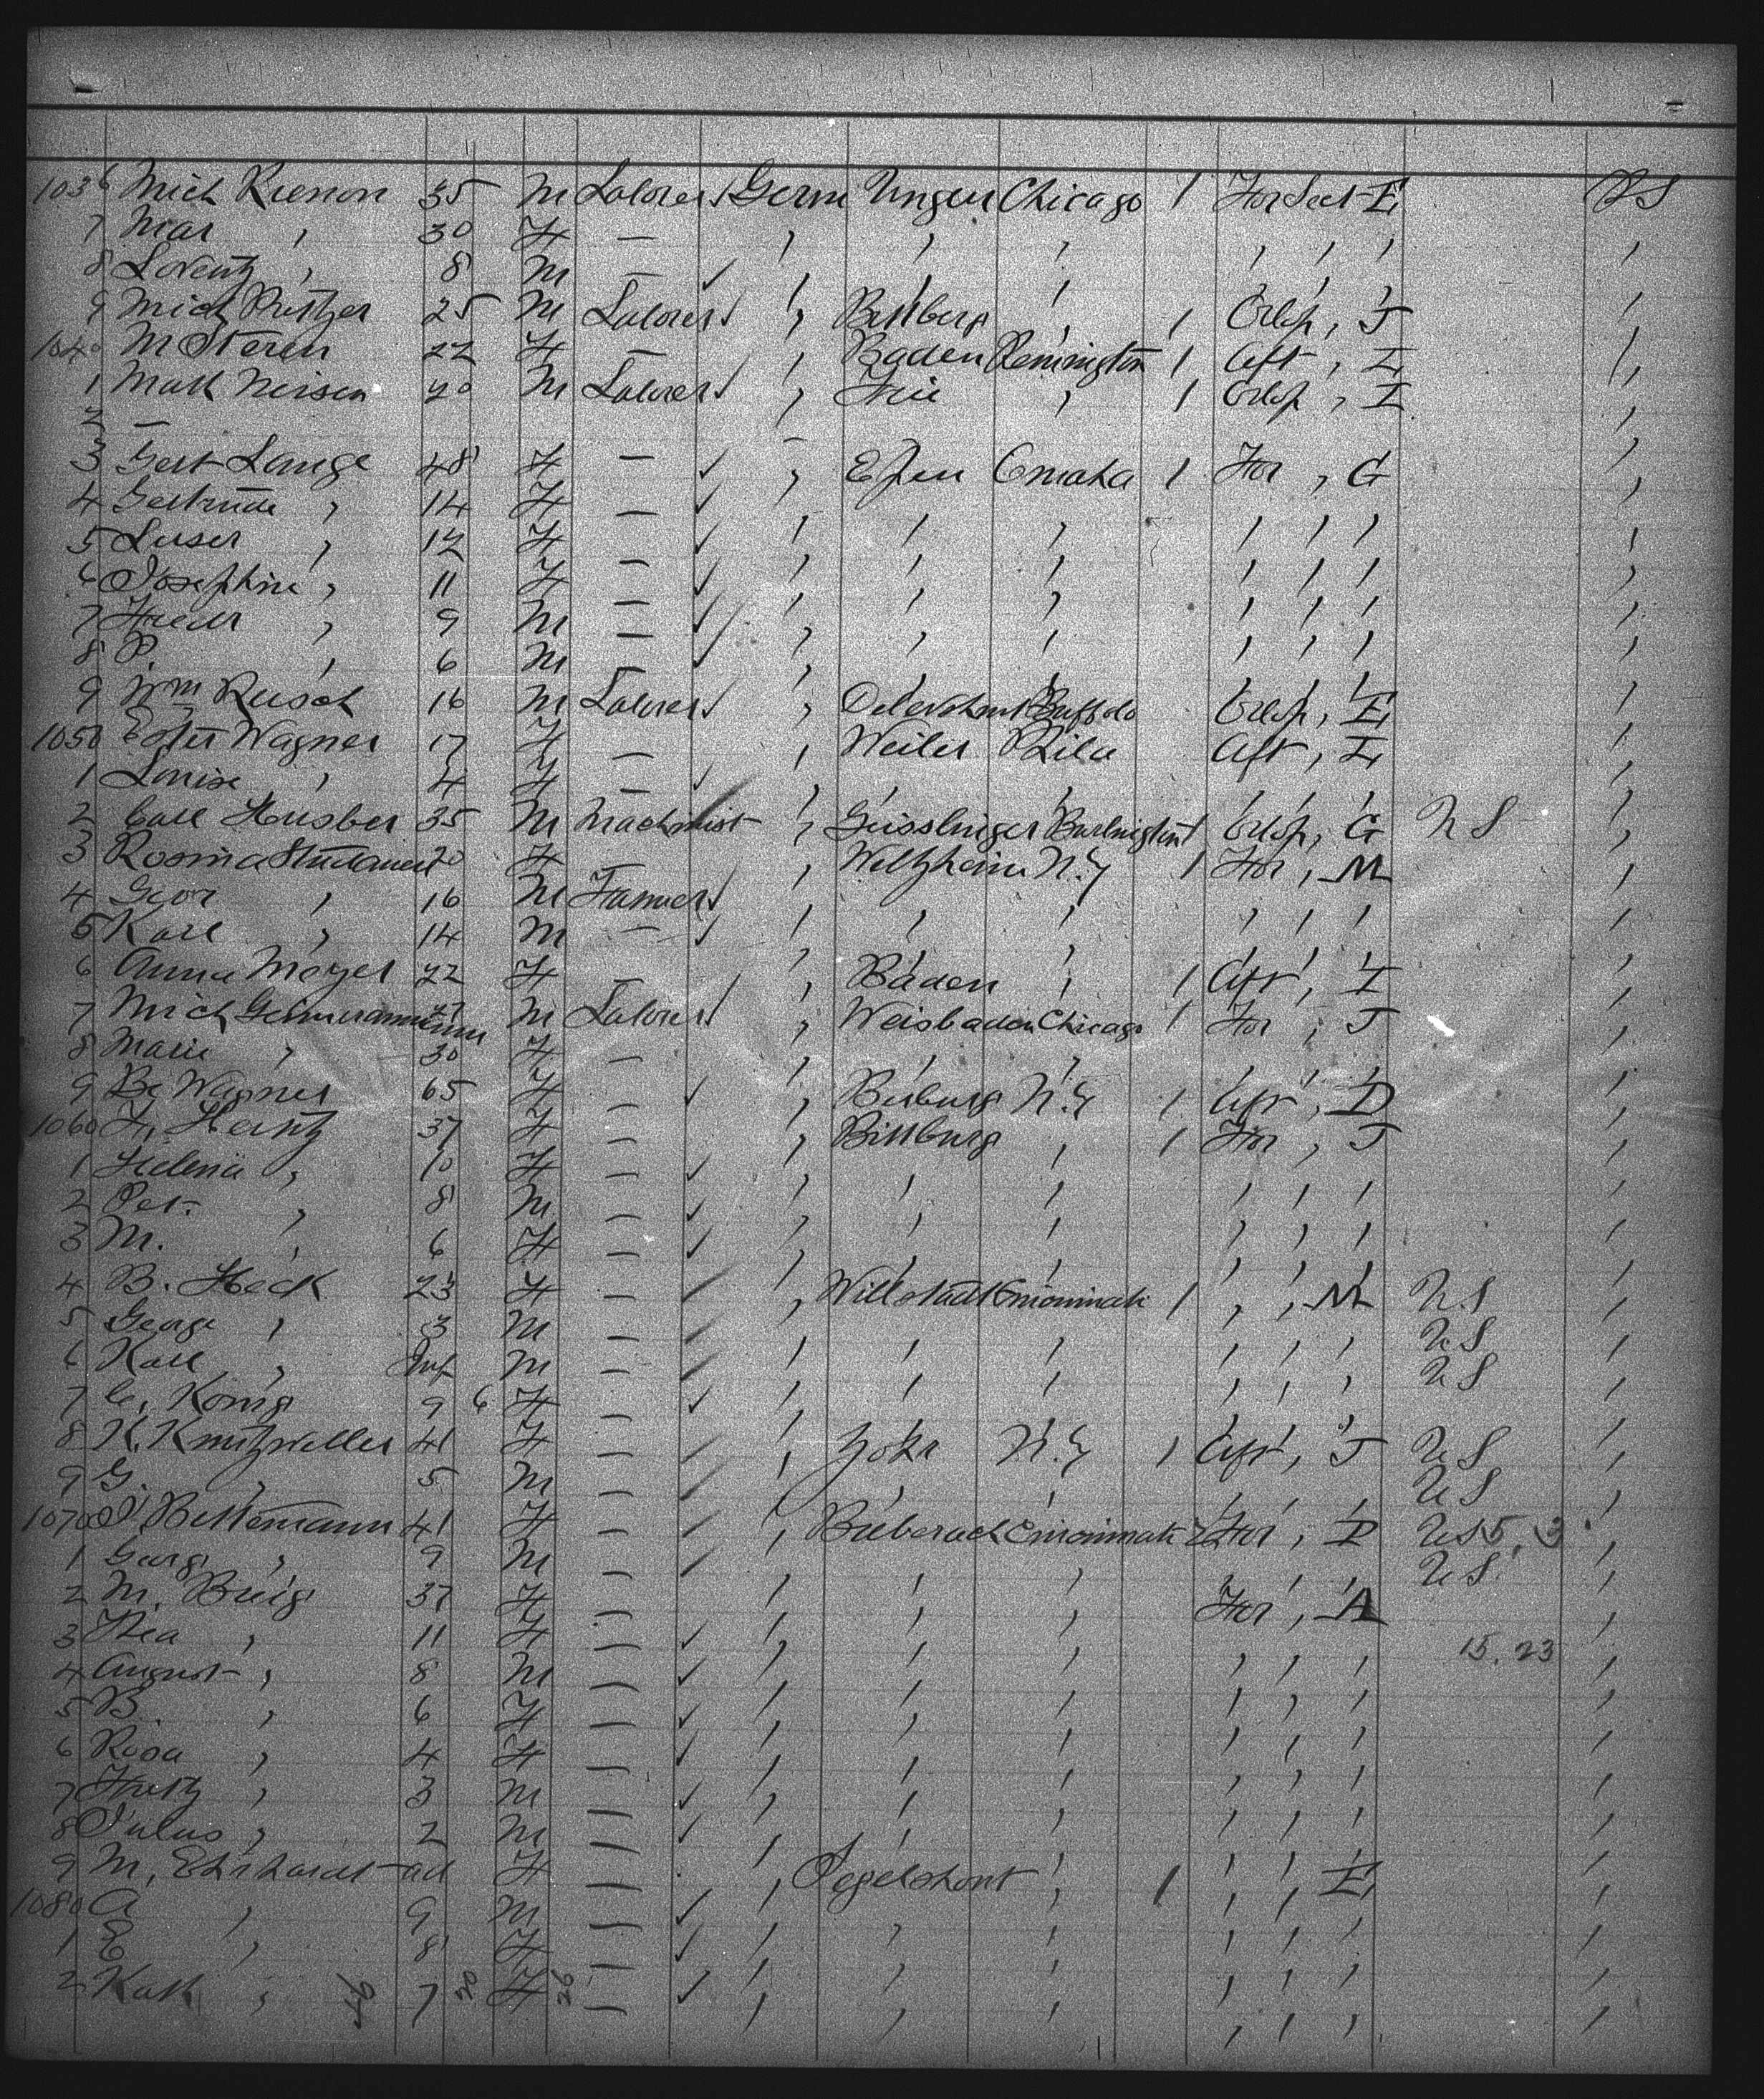 1036 Mich Rienon 35 M Laborer Germ Ungen Chicago 1 For Sect E US
7 Mar , 30 F — , , , , , , ,
8 Lorentz , 8 M — , , , , , , ,
9 Mich 25 M Laborer , Bittburg , 1 Crlsp , J ,
1040 M Steren 22 F — , Baden Remington 1 Aft , E ,
1 Math Neisen 20 M Laborer , , 1 Crlsp , E ,
2 —
3 Gert Lange 48 F — , Essen Omaha 1 For , G ,
4 Gertrude , 14 F — , , , , , , ,
5 , 12 F — , , , , , , ,
6 Josephine , 11 F — , , , , , , ,
7 , 9 M — , , , , , , ,
8 P. , 6 M — , , , , , , ,
9 Wm Reisch 16 M Laborer , Buffalo Crlsp , E ,
1050 Wagner 17 F — , Weiler Phila Aft , E ,
1 Louise , 4 F — , , , , , , ,
2 Carl Heusber 35 M Machinist , Geisslinger Burlington 1 Crlsp , G US ,
3 Rosina 20 F — , Weltzheim N.Y 1 For , M ,
4 Geor , 16 M Farmer , , , , , , ,
5 Karl , 14 M — , , , , , , ,
6 Anna Meyer 22 F — , Baden , 1 Aft , E ,
7 Mich 27 M Laborer , Weisbaden Chicago 1 For , J ,
8 Marie , 30 F — , , , , , , ,
9 Be Wagner 65 F — , N.Y 1 Aft , D ,
1060 F. Hentz 37 F — , Bittburg , 1 For , J ,
1 Helena , 10 F — , , , , , , ,
2 Pet. , 8 M — , , , , , , ,
3 M. , 6 F — , , , , , , ,
4 B. Heck 23 F — , Willstadt Cincinnati 1 , , M US ,
5 George , 3 M — , , , , , , US ,
6 Karl , Inf M — , , , , , , US ,
7 C. König 9 6 F — , , , , , , ,
8 K. Knitzweller 41 F — , N.Y 1 Aft , J US ,
9 G. , 5 M — , , , , , , US ,
1070 J. Bettemann 41 F — , Bieberach Cincinnati 2 For , D US 5, 3 ,
1 Georg , 9 M — , , , , , US ,
2 M. Breig 37 F — , , , For , A ,
3 Thea , 11 F — , , , , , , 15. 23 ,
4 August , 8 M — , , , , , , ,
5 B. , 6 F — , , , , , , ,
6 Rosa , 4 F — , , , , , , ,
7 , 3 M — , , , , , , ,
8 Julus , 2 M — , , , , , , ,
9 M. Ehrhardt ad F — , , 1 , , E ,
1080 A , 9 M — , , , , , , ,
1 E , 8 F — , , , , , , ,
2 Kath , 46 7 20 F 26 — , , , , , , ,